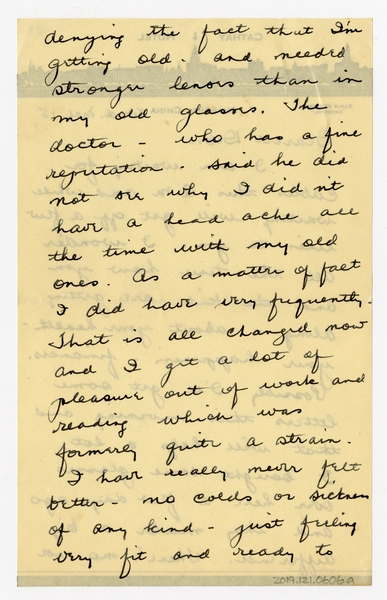 denying the fact that I'm
getting old - and needed
stronger lenses than in
my old glasses. The
doctor - who has a fine
reputation - said he did
not see why I did n't
have a head ache all
the time with my old
ones. As a matter of fact
I did have very frequently -
That is all changed now
and I get a lot of
pleasure out of work and
reading which was
formerly quite a strain.
I have really never felt
better - no colds or sickness
of any kind - just feeling
very fit and ready to
2019.121.0606a